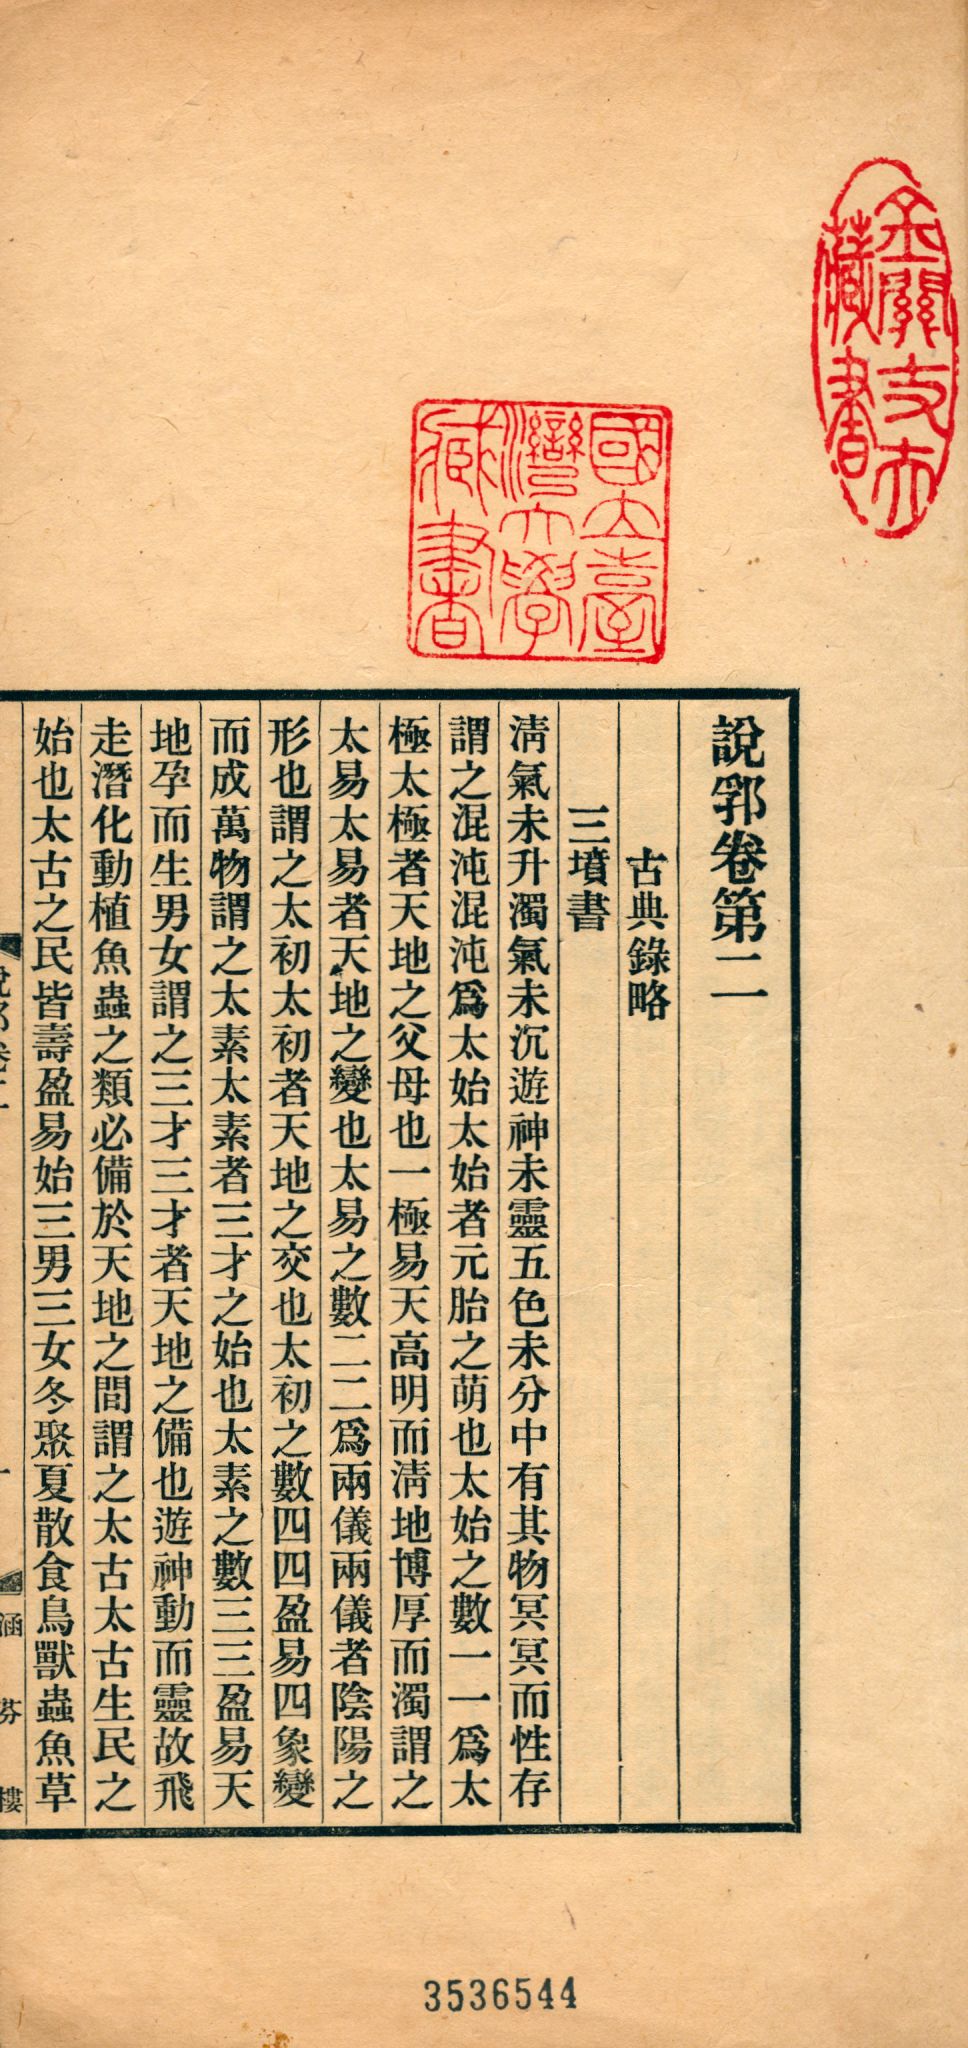 金關丈夫藏書
國立臺灣大學藏書
說郛卷第二
古典錄略
三墳書
淸氣未升濁氣未沉遊神未靈五色未分中有其物冥冥而性存
謂之混沌混沌爲太始太始者元胎之萌也太始之數一一爲太
極太極者天地之父母也一極易天高明而淸地博厚而濁謂之
太易太易者天地之變也太易之數二二爲兩儀兩儀者陰陽之
形也謂之太初太初者天地之交也太初之數四四盈易四象變
而成萬物謂之太素太素者三才之始也太素之數三三盈易天
地孕而生男女謂之三才三才者天地之備也遊神動而靈故飛
走潛化動植魚蟲之類必備於天地之間謂之太古太古生民之
始也太古之民皆壽盈易始三男三女冬聚夏散食鳥獸蟲魚草
說郛卷二
一
涵芬樓
3536544